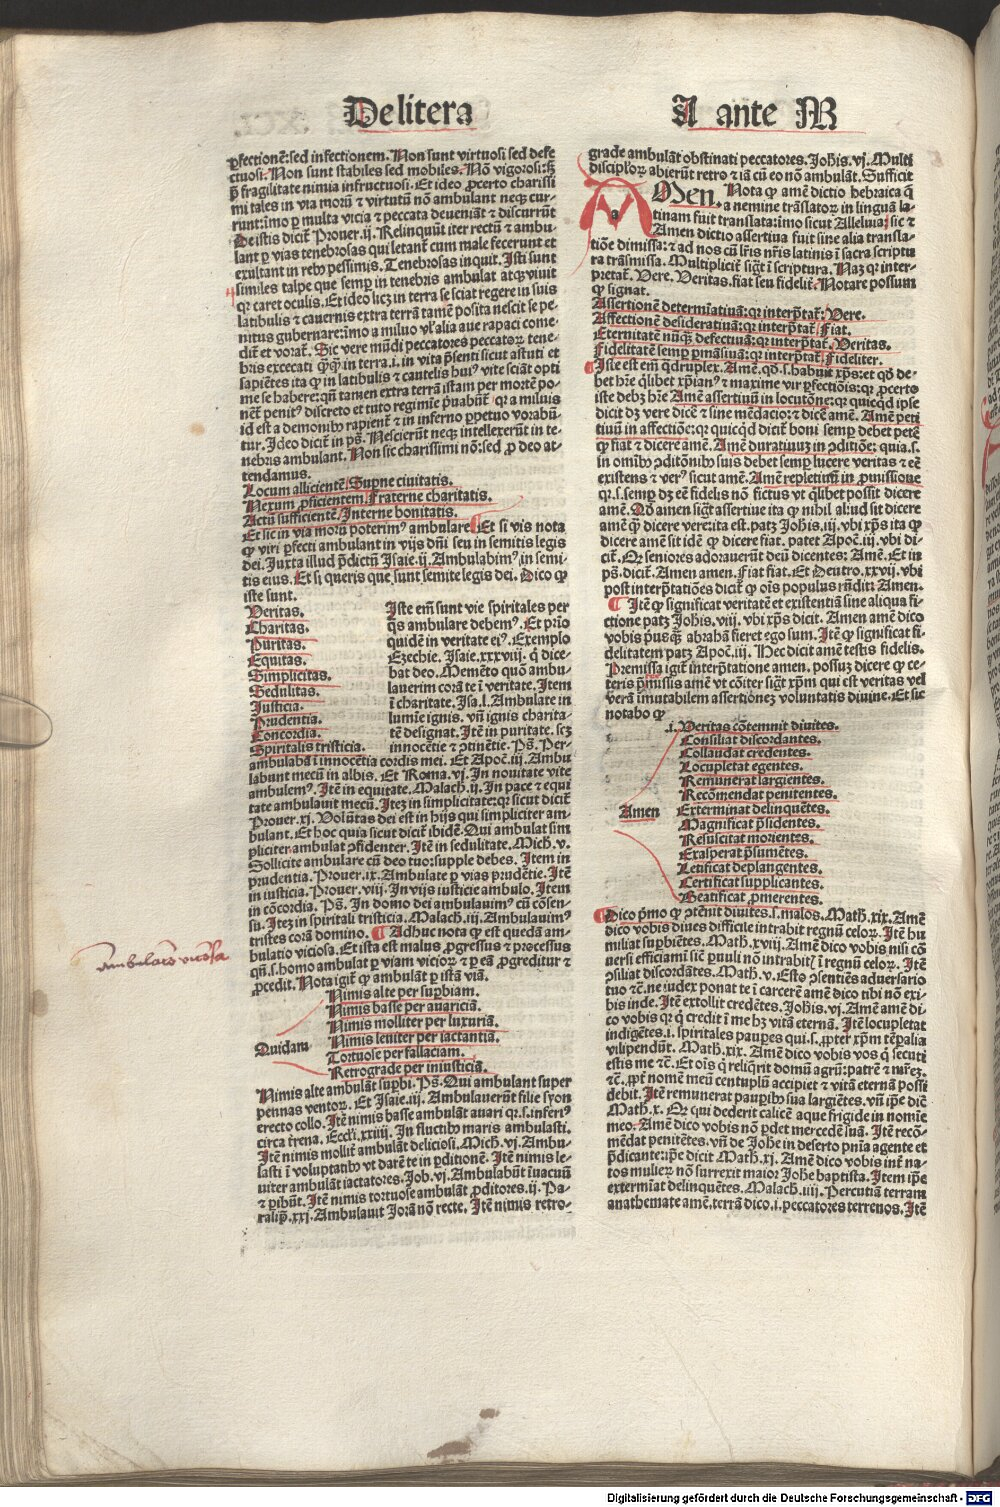 De litera
A ante M
ꝑfectionē: sed infectionem. Non sunt virtuosi sed defe
ctuosi. Non sunt stabiles sed mobiles. Nō vigorosi: sꝫ
p̄ fragilitate nimia infructuosi. Et ideo ꝓcerto charissi
mi tales in via morū ⁊ virtutū nō ambulant neqꝫ cur-
runt: īmo ꝑ multa vicia ⁊ peccata deueniāt ⁊ discurrūt
De istis dicit̄ Prouer. ij. Relinquūt iter rectū ⁊ ambu-
lant ꝑ vias tenebrosas qui letant̄ cum male fecerunt et
exultant in rebꝰ pessimis. Tenebrosas inquit. Isti sunt
similes talpe que semꝑ in tenebris ambulat atqꝫ viuit
qꝛ caret oculis. Et ideo licꝫ in terra se sciat regere in suis
latibulis ⁊ cauernis extra terrā tamē posita nescit se pe-
nitus gubernare: īmo a miluo vl̓ alia aue rapaci come-
dit̄ et vorat̄. Sic vere mūdi peccatores peccatoꝝ tene-
bris excecati qꝫqꝫ in terra .i. in vita p̄senti sicut astuti et
sapiētes ita ꝙ in latibulis ⁊ cautelis huiꝰ vite sciāt opti
me se habere: qñ tamen extra terrā istam per mortē po-
nēt̄ penitꝰ discreto et tuto regimīe p̄uabūt̄ qꝛ a miluis
id est a demonibꝰ rapient̄ ⁊ in inferno ꝑpetuo vorabū-
tur. Ideo dicit̄ in pṡ. Nescierūt neqꝫ intellexerūt in te-
nebris ambulant. Non sic charissimi nō: sed ꝓ deo at-
tendamus.
Locum allicientē Supne ciuitatis.
Nexum ꝓficientem Fraterne charitatis.
Actū sufficientē Interne bonitatis.
Et sic in via morū poterimꝰ ambulare. Et si vis nota
ꝙ viri ꝑfecti ambulant in vijs dn̄i seu in semitis legis
dei. Juxta illud p̄dictū Isaie. ij. Ambulabimꝰ in semi-
tis eius. Et si queris que sunt semite legis dei. Dico ꝙ
iste sunt.
Veritas.
Charitas.
Puritas.
Equitas.
Simplicitas.
Sedulitas.
Justicia.
Prudentia.
Concordia.
Spiritalis tristicia.
Iste em̄ sunt vie spiritales per
q̄s ambulare debemꝰ. Et prio
quidē in veritate eiꝰ. Exemplo
Ezechie. Isaie. xxxviij. q̄ dice-
bat deo. Memēto quō ambu
lauerim corā te ī veritate. Item
ī charitate. Isa. l. Ambulate in
lumīe ignis. vn̄ ignis charita-
tē designat. Itē in puritate. scꝫ
innocētie ⁊ ꝯtinētie. Pṡ. Per-
ambulabā ī innocētia cordis mei. Et Apoč. iij. Ambu
labunt mecū in albis. Et Roma. vj. In nouitate vite
ambulemꝰ. Itē in equitate. Malach. ij. In pace ⁊ equi
tate ambulauit mecū. Iteꝫ in simplicitate: qꝛ sicut dicit̄
Prouer. xj. Volūtas dei est in hijs qui simpliciter am-
bulant. Et hoc quia sicut dicit̄ ibidē. Qui ambulat sim
pliciter ambulat ꝯfidenter. Itē in sedulitate. Mich. v.
Sollicite ambulare cū deo tuo: supple debes. Item in
prudentia. Prouer. ix. Ambulate ꝑ vias prudētie. Itē
in iusticia. Prouer. viij. In vijs iusticie ambulo. Item
in cōcordia. Pṡ. In domo dei ambulauimꝰ cū cōsen-
su. Iteꝫ in spiritali tristicia. Malach. iij. Ambulauimꝰ
tristes corā domino. Adhuc nota ꝙ est quedā am-
bulatio viciosa. Et ista est malus ꝓgressus ⁊ ꝓcessus
qñ .s. homo ambulat ꝑ viam vicioꝝ ⁊ ꝑ eā ꝓgreditur ⁊
ꝓcedit. Nota igit̄ ꝙ ambulāt ꝑ istā viā.
Quidam
Nimis alte per suꝑbiam.
Nimis basse per auariciā.
Nimis molliter per luxuriā.
Nimis leniter per iactantiā.
Tortuose per fallaciam.
Retrograde per iniusticiā.
Nimis alte ambulāt suꝑbi. Pṡ. Qui ambulant super
pennas ventoꝝ. Et Isaie. iij. Ambulauerūt filie syon
erecto collo. Itē nimis basse ambulāt auari qꝛ .s. inferiꝰ
circa t̓rena. Eccli. xxiiij. In fluctibꝰ maris ambulasti.
Itē nimis mollit̓ ambulāt deliciosi. Mich. vj. Ambu-
lasti ī voluptatibꝰ vt darē te in ꝑditionē. Itē nimis le-
uiter ambulāt iactatores. Iob. vj. Ambulabūt ī vacuū
⁊ ꝑibūt. Itē nimis tortuose ambulāt ꝓditores. ij. Pa-
ralip̄. xxj. Ambulauit Iorā nō recte. Itē nimis retro-
Ambulatio viciosa
grade ambulāt obstinati peccatores. Ioh̄is. vj. Multi
discipuloꝝ abierūt retro ⁊ iā cū eo nō ambulāt. Sufficit
a
Men. Nota ꝙ amē dictio hebraica q̄
a nemine trāslatoꝝ in linguā la-
tinam fuit translata: īmo sicut Alleluia: sic ⁊
Amen dictio assertiua fuit sine alia transla-
tiōe dimissa: ⁊ ad nos cū lr̄is nr̄is latinis ī sacra scriptu
ra trāsmissa. Multiplicit̓ sigt̄ ī scriptura. Naꝫ qꝛ inter-
pretat̄. Vere. Veritas. fiat seu fidelit̓. Notare possum
ꝙ signat.
Assertionē determīatiuā: qꝛ interp̄tat̄: Vere.
Affectionē desideratiuā: qꝛ interp̄tat̄ Fiat.
Eternitatē nūqꝫ defectiuā: qꝛ interp̄tat̄. Veritas.
Fidelitatē semꝑ ꝑmāsiuā: qꝛ interp̄tat̄. Fideliter.
Iste est em̄ q̄druplex. Amē. qd̓ .s. habuit xp̄s: et qd̓ de-
bet h̄re q̄libet xp̄ianꝰ ⁊ maxime vir ꝑfectiōis: qꝛ ꝓcerto
iste debꝫ h̄re Amē assertiuū in locutōne: qꝛ quicqd̓ ipse
dicit dꝫ vere dicē ⁊ sine mēdacio: ⁊ dicē amē. Amē peti
tiuū in affectiōe: qꝛ quicqd̓ dicit̄ boni semꝑ debet petē
ꝙ fiat ⁊ dicere amē. Amē duratiuuꝫ in ꝯditiōe: quia .s.
in omībꝰ ꝯditōnibꝰ suis debet semꝑ lucere veritas ⁊ eē
existens ⁊ verꝰ sicut amē. Amē repletiuū in ꝓmissione
qꝛ .s. semꝑ dꝫ eē fidelis nō fictus vt q̄libet possit dicere
amē. Qd̓ amen sigt̄ assertiue ita ꝙ nihil aliud sit dicere
amē q̄ꝫ dicere vere: ita est. patꝫ Ioh̄is. iij. vbi xp̄s ita ꝙ
dicere amē sit idē ꝙ dicere fiat. patet Apoč. iij. vbi di-
cit̄. Qꝛ seniores adorauerūt deū dicentes: Amē. Et in
pṡ. dicit̄. Amen amen. Fiat fiat. Et Deutro. xxvij. vbi
post interp̄tatiōes dicit̄ ꝙ oīs populus rn̄dit: Amen.
Itē ꝙ significat veritatē et existentiā sine aliqua fi-
ctione patꝫ Ioh̄is. viij. vbi xp̄s dicit. Amen amē dico
vobis p̄usqꝫ abrahā fieret ego sum. Itē ꝙ significat fi-
delitatem patꝫ Apoč. iij. Hec dicit amē testis fidelis.
Premissa igit̄ interp̄tatione amen. possuꝫ dicere ꝙ ce-
teris p̄missis amē vt cōiter sigt̄ xp̄m qui est veritas vel
verā īmutabilem assertioneꝫ voluntatis diuine. Et sic
notabo ꝙ
Amen
.i. Veritas cōtemnit diuites.
Consiliat discordantes.
Collaudat credentes.
Locupletat egentes.
Remunerat largientes.
Recōmendat penitentes.
Exterminat delinquētes.
Magnificat p̄sidentes.
Resuscitat morientes.
Exasperat p̄sumētes.
Letificat deplangentes.
Certificat supplicantes.
Beatificat ꝓmerentes.
Dico p̄mo ꝙ ꝯtēnit diuites .s. malos. Math. xix. Amē
dico vobis diues difficile intrabit regnū celoꝝ. Itē hu
miliat suꝑbiētes. Math. xviij. Amē dico vobis nisi cō
uersi efficiami sic̄ ꝑuuli nō intrabit̓ ī regnū celoꝝ. Itē
ꝯsiliat discordātes. Math. v. Esto ꝯsentiēs aduersario
tuo ⁊c̄. ne iudex ponat te ī carcerē amē dico tibi nō exi-
bis inde. Itē extollit credētes. Ioh̄is. vj. Amē amē di-
co vobis qꝛ q̄ credit ī me hꝫ vitā eternā. Itē locupletat
indigētes .i. spiritales pauꝑes qui .s. ꝓpter xp̄m tēꝑalia
vilipendūt. Math. xix. Amē dico vobis vos q̄ secuti
estis me ⁊c̄. Et oīs q̄ reliq̄rit domū agrū: patrē ⁊ matreꝫ.
⁊c̄. ꝓpt̓ nomē meū centuplū accipiet ⁊ vitā eternā possi
debit. Itē remunerat pauꝑibꝰ sua largiētes. vn̄ ip̄e dic̄
Math. x. Qꝛ qui dederit calicē aque frigide in nomīe
meo. Amē dico vobis nō ꝑdet mercedē suā. Itē recō-
mēdat penitētes. vn̄ de Iohē in deserto pn̄ia agente et
p̄dicante: ip̄e dicit Math. xj. Amē dico vobis int̓ na-
tos mulieꝝ nō surrexit maior Iohē baptista. Item ip̄e
extermīat delinquētes. Malach. iiij. Percutiā terram
anathemate amē. terrā dico .i. peccatores terrenos. Itē
Digitalisierung gefördert durch die Deutsche Forschungsgemeinschaft - DFG